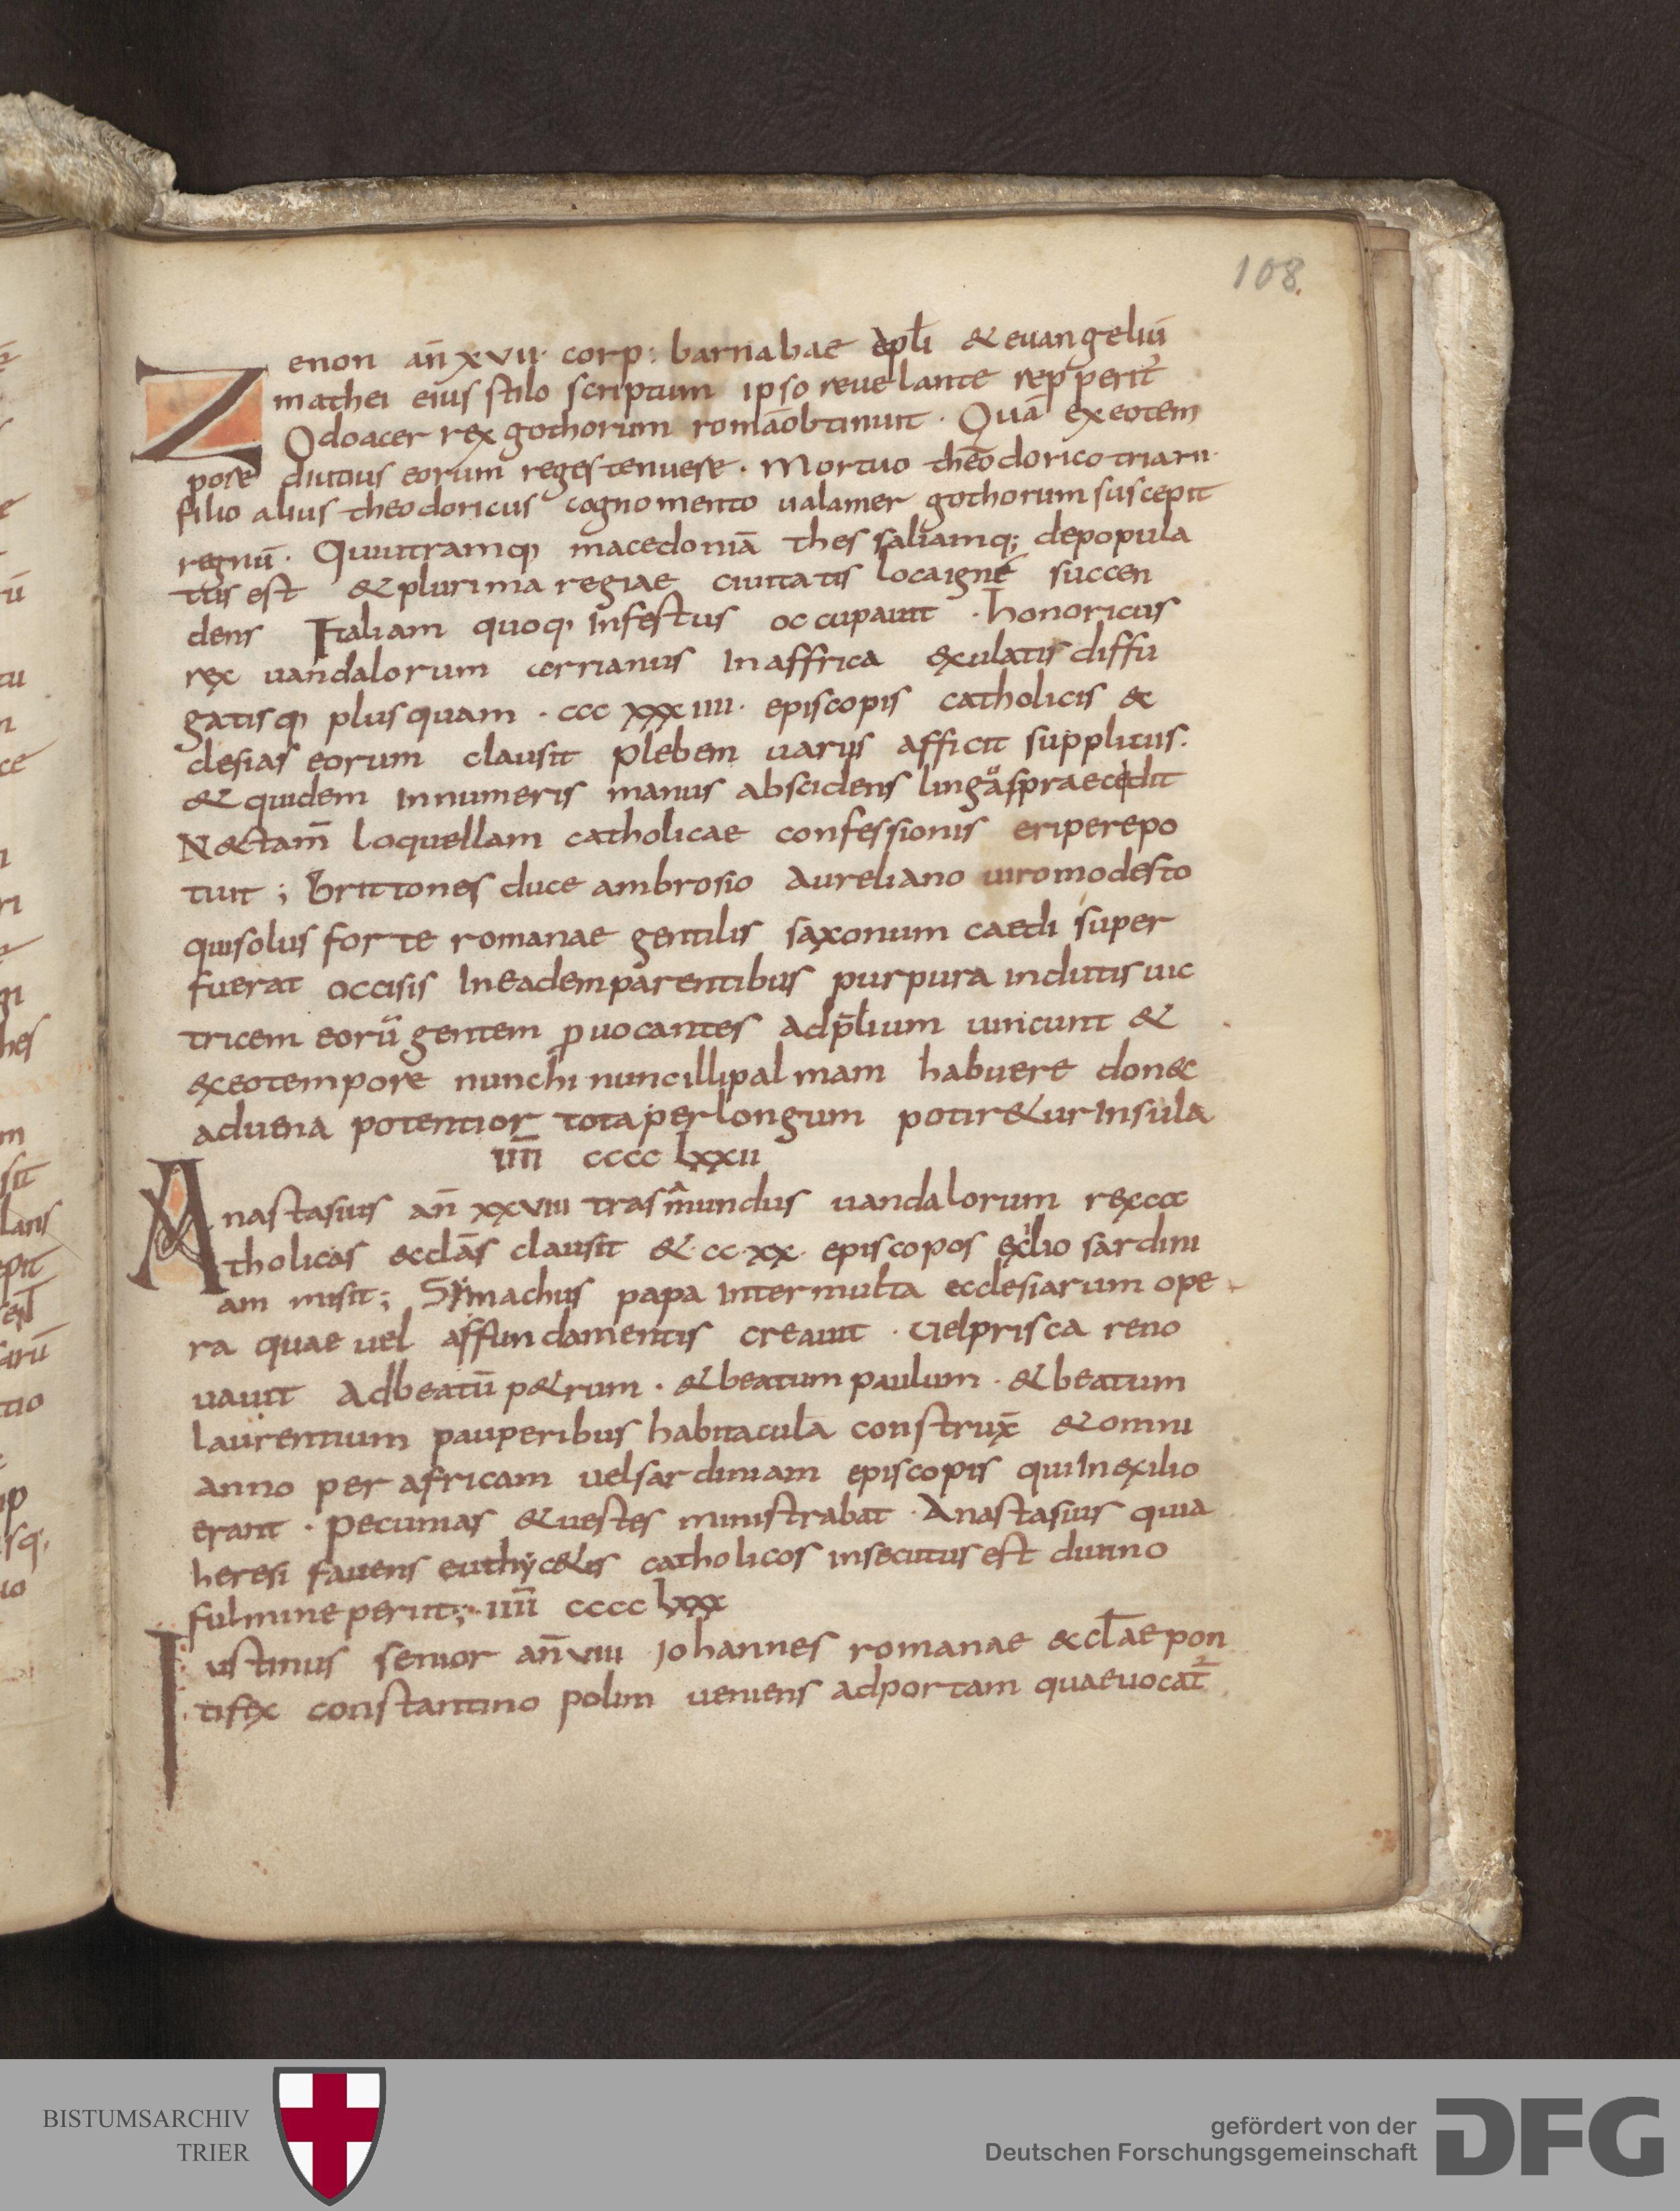 108.
Zenon an̄ xvii· corp: barnabae apłi & euangeliū
mathei eius stilo scriptum ipso reuelante repperit
Odoacer rex gothorum romā obtinuit · Quā ex eo tem
pore diutius eorum reges tenuere · Mortuo theodorico triarii·
filio alius theodoricus cognomento ualamer gothorum suscepit
regnū · Qui utramq; macedoniā thessaliamq; depopula
tus est & plurima regiae ciuitatis loca igne succen
dens Italiam quoq; infestus occupauit · honoricus
rex uandalorum arrianus In affrica exulatis diffu
gatisq; plus quam · ccc xxx iiii · episcopis catholicis &
clesias eorum clausit plebem uariis afficit suppliciis·
& quidem innumeris manus abscidens linguas praecidit
N&tam̄ loquellam catholicae confessionis eripere po
tuit ; Brittones duce ambrosio Aureliano uiro modesto
qui solus forte romanae gentilis saxonum caedi super
fuerat occisis In eadem parentibus purpura indutis uic
tricem eorū gentem puocantes ad pł̄ium uincunt &
ex eo tempore nunc hi nunc illi palmam habuere don&
aduena potentior tota per longum potir&ur Insula
īīīī cccc lxxii
Anastasius an̄ xxviii trasmundus uandalorum rex ca
tholicas &clās clausit & · cc · xx · episcopos exilio sardini
am misit ; Symachus papa Inter multa ecclesiarum ope
ra quae uel affundamentis creauit · uel prisca reno
uauit Ad beatū p&rum · & beatum paulum · & beatum
laurentium pauperibus habitacula construx̄ & omni
anno per africam uel sardiniam episcopis qui In exilio
erant · pecunias & uestes ministrabat · Anastasius quia
heresi fauens euthyc&is catholicos insecutus est diuino
fulmine periit ; · īīīī cccc lxxx
Iustinus senior an̄ viii Johannes romanae &cłae pon
tifex constantinopolim ueniens ad portam quae uocat̄
BISTUMSARCHIV
TRIER
gefördert von der
Deutschen Forschungsgemeinschaft
DFG